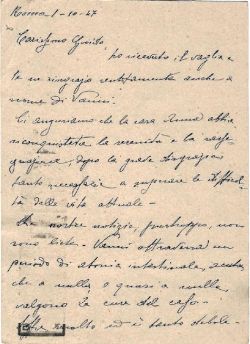 Roma 1-10-47
Carissimo Guido,
ho ricevuto il vaglia e
te ne ringrazio sentitamente anche a
nome di Vanni.
Ci auguriamo che la cara Anna abbia
riconquistata la serenità e la rasse-
gnazione, dopo la grave disgrazia
tanto necessarie a superare le difficol-
tà della vita attuale-
Le nostre notizie, purtroppo, non
sono liete. Vanni attraversa un
periodo di atonia intestinale, acuta,
che a nulla, o quasi a nulla,
valgono le cure del caso.
molto ed è tanto debole-